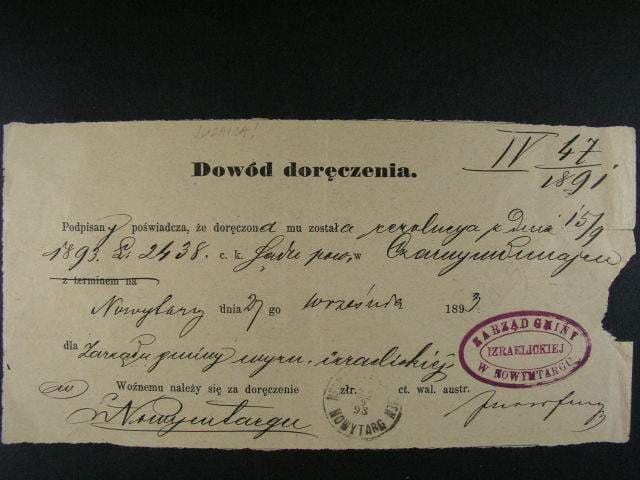 JUDAICA!
IV 47/1891
Dowód doręczenia.
Podpisany poświadcza, że doręczona mu została rezolucya z dnia 15/9
1893 L. 2438. c. k. Sądu pow. w Czarnymdunajcu
z terminem na
Nowytarg dnia 27 go września 1893
dla Zarządu gminy wyzn. izraelickiej
ZARZĄD GMINY
IZRAELICKIEJ
W NOWYMTARGU
Woźnemu należy się za doręczenie złr. ct. wal. austr.
w Nowymtargu
NOWYTARG
93